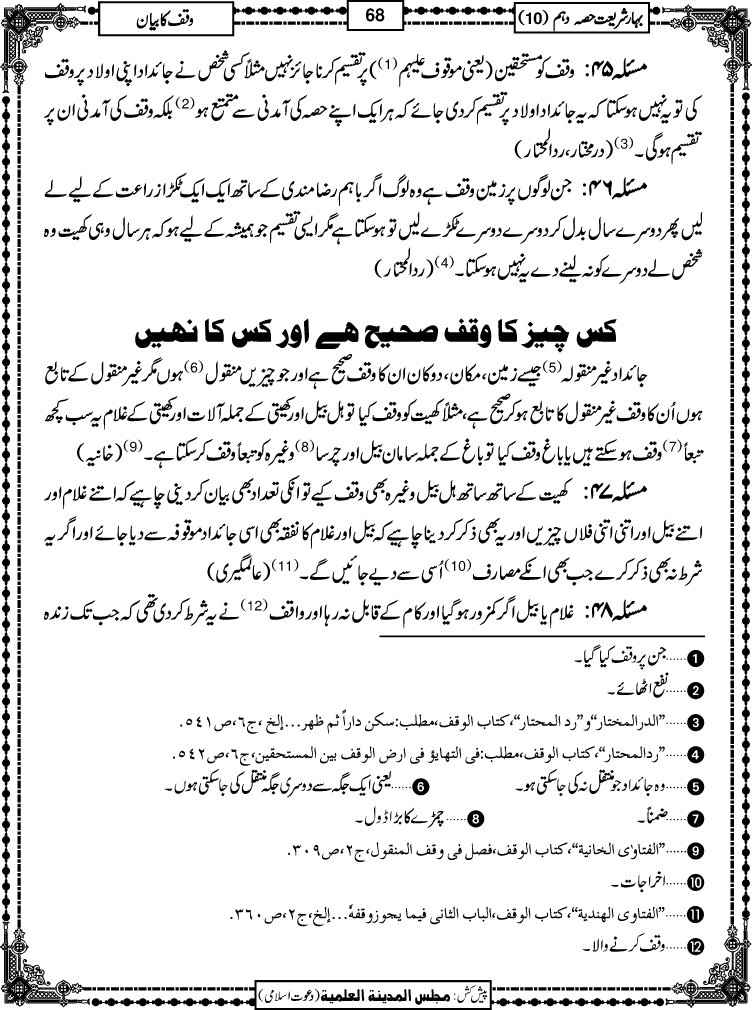 بہارِ شریعت حصہ دہم (10)
68
وقف کا بیان
مسئلہ ۴۵: وقف کو مستحقین (یعنی موقوف علیہم (1)) پر تقسیم کرنا جائز نہیں مثلاً کسی شخص نے جائداد اپنی اولاد پر وقف
کی تو یہ نہیں ہوسکتا کہ یہ جائداد اولاد پر تقسیم کردی جائے کہ ہر ایک اپنے حصہ کی آمدنی سے متمتع ہو (2) بلکہ وقف کی آمدنی ان پر
تقسیم ہوگی۔ (3) (درمختار، ردالمحتار)
مسئلہ ۴۶: جن لوگوں پر زمین وقف ہے وہ لوگ اگر باہم رضامندی کے ساتھ ایک ایک ٹکڑا زراعت کے لیے لے
لیں پھر دوسرے سال بدل کر دوسرے دوسرے ٹکڑے لیں تو ہوسکتا ہے مگر ایسی تقسیم جو ہمیشہ کے لیے ہو کہ ہر سال وہی کھیت وہ
شخص لے دوسرے کو نہ لینے دے یہ نہیں ہوسکتا۔ (4) (ردالمحتار)
کس چیز کا وقف صحیح ہے اور کس کا نہیں
جائداد غیر منقولہ (5) جیسے زمین، مکان، دوکان ان کا وقف صحیح ہے اور جو چیزیں منقول (6) ہوں مگر غیر منقول کے تابع
ہوں اُن کا وقف غیر منقول کا تابع ہوکر صحیح ہے، مثلاً کھیت کو وقف کیا تو ہل بیل اور کھیتی کے جملہ آلات اور کھیتی کے غلام یہ سب کچھ
تبعاً (7) وقف ہوسکتے ہیں یا باغ وقف کیا تو باغ کے جملہ سامان بیل اور چرسا (8) وغیرہ کو تبعاً وقف کرسکتا ہے۔ (9) (خانیہ)
مسئلہ ۴۷: کھیت کے ساتھ ساتھ ہل بیل وغیرہ بھی وقف کیے تو انکی تعداد بھی بیان کردینی چاہیے کہ اتنے غلام اور
اتنے بیل اور اتنی اتنی فلاں چیزیں اور یہ بھی ذکر کردینا چاہیے کہ بیل اور غلام کا نفقہ بھی اسی جائداد موقوفہ سے دیا جائے اور اگر یہ
شرط نہ بھی ذکر کرے جب بھی انکے مصارف (10) اُسی سے دیے جائیں گے۔ (11) (عالمگیری)
مسئلہ ۴۸: غلام یا بیل اگر کمزور ہوگیا اور کام کے قابل نہ رہا اور واقف (12) نے یہ شرط کردی تھی کہ جب تک زندہ
1 ......جن پر وقف کیا گیا۔
2 ......نفع اٹھائے۔
3 ......”الدرالمختار“و”رد المحتار“، کتاب الوقف، مطلب: سکن داراً ثم ظهر...إلخ، ج٦، ص٥٤١.
4 ......”ردالمحتار“، کتاب الوقف، مطلب: فی التهایؤ فی ارض الوقف بین المستحقین، ج٦، ص٥٤٢.
5 ......وہ جائداد جو منتقل نہ کی جاسکتی ہو۔ 6 ......یعنی ایک جگہ سے دوسری جگہ منتقل کی جاسکتی ہوں۔
7 ......ضمناً۔ 8 ......چمڑے کا بڑا ڈول۔
9 ......”الفتاوٰی الخانیة“، کتاب الوقف، فصل فی وقف المنقول، ج٢، ص٣٠٩.
10 ......اخراجات۔
11 ......”الفتاوی الهندیة“، کتاب الوقف، الباب الثانی فیما یجوز وقفهٗ...إلخ، ج٢، ص٣٦٠.
12 ......وقف کرنے والا۔
پیش کش: مجلس المدینة العلمیة (دعوت اسلامی)